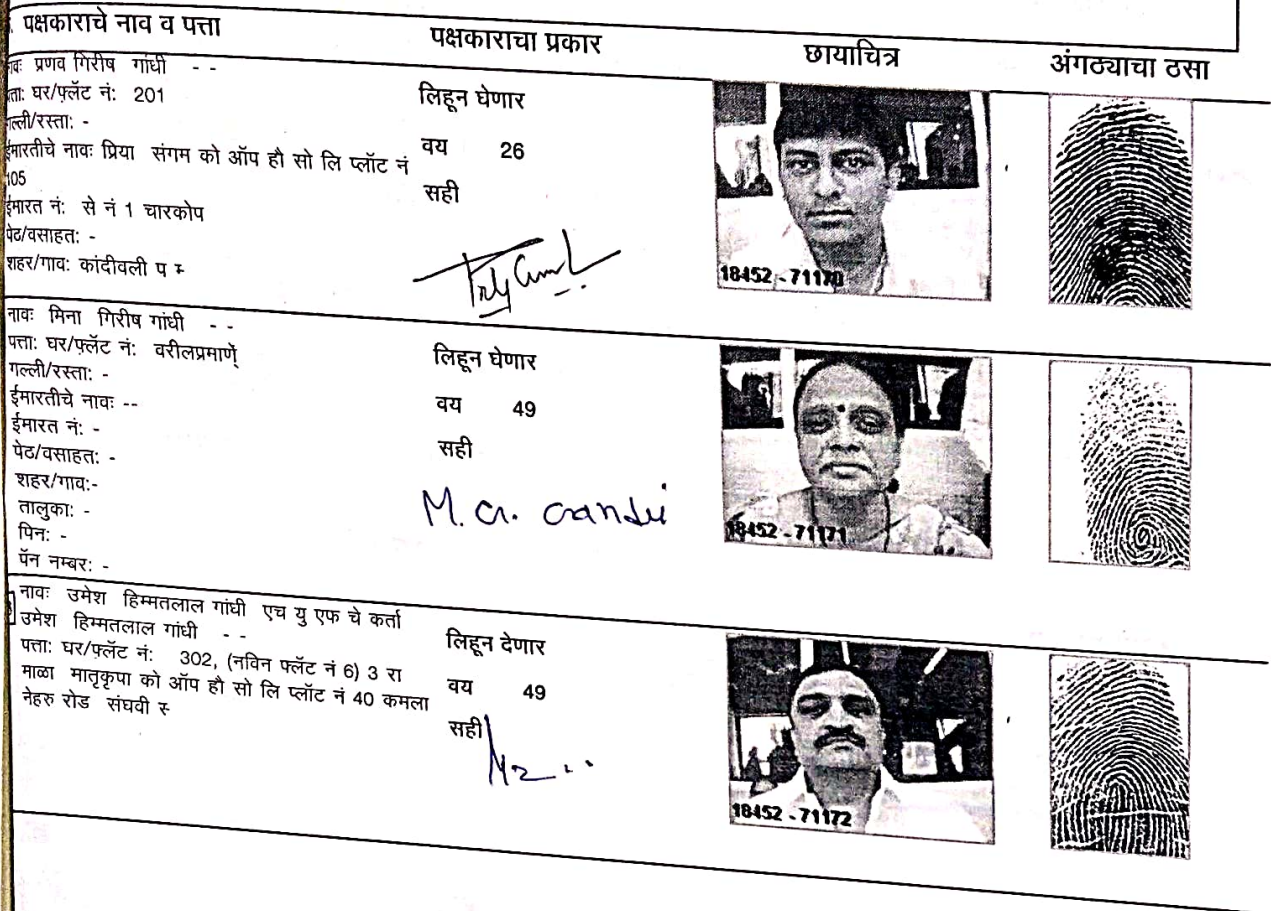 पक्षकाराचे नाव व पत्ता
पक्षकाराचा प्रकार
छायाचित्र
अंगठ्याचा ठसा
प्रणव गिरीष गांधी - -
घर/फ़्लॅट नं: 201
गल्ली/रस्ता: -
ईमारतीचे नावः प्रिया संगम को ऑप हौ सो लि प्लॉट नं
105
ईमारत नं: से नं 1 चारकोप
पेठ/वसाहत: -
शहर/गाव: कांदीवली प
लिहून घेणार
वय 26
सही
18452 - 71170
नावः मिना गिरीष गांधी - -
पत्ता: घर/फ़्लॅट नं: वरीलप्रमाणें
गल्ली/रस्ता: -
ईमारतीचे नावः --
ईमारत नं: -
पेठ/वसाहत: -
शहर/गाव:-
तालुका: -
पिन: -
पॅन नम्बर: -
लिहून घेणार
वय 49
सही
M. G. Gandhi
18452 - 71171
नावः उमेश हिम्मतलाल गांधी एच यु एफ चे कर्ता
उमेश हिम्मतलाल गांधी - -
पत्ता: घर/फ़्लॅट नं: 302, (नविन फ्लॅट नं 6) 3 रा
माळा मातृकृपा को ऑप हौ सो लि प्लॉट नं 40 कमला
नेहरु रोड संघवी
लिहून देणार
वय 49
सही
18452 - 71172